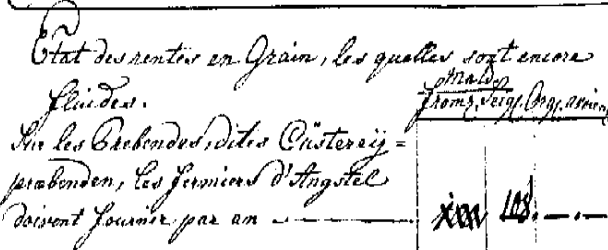 Etat des rentes en Grain, les quelles sont encore
fluides.
Mald.
fromt. Seigl. Org. avoine
Sur les Prebendes, dites Cüsterey=
præbenden, les fermiers d'Angstel
doivent fournir par an — 108. — . —